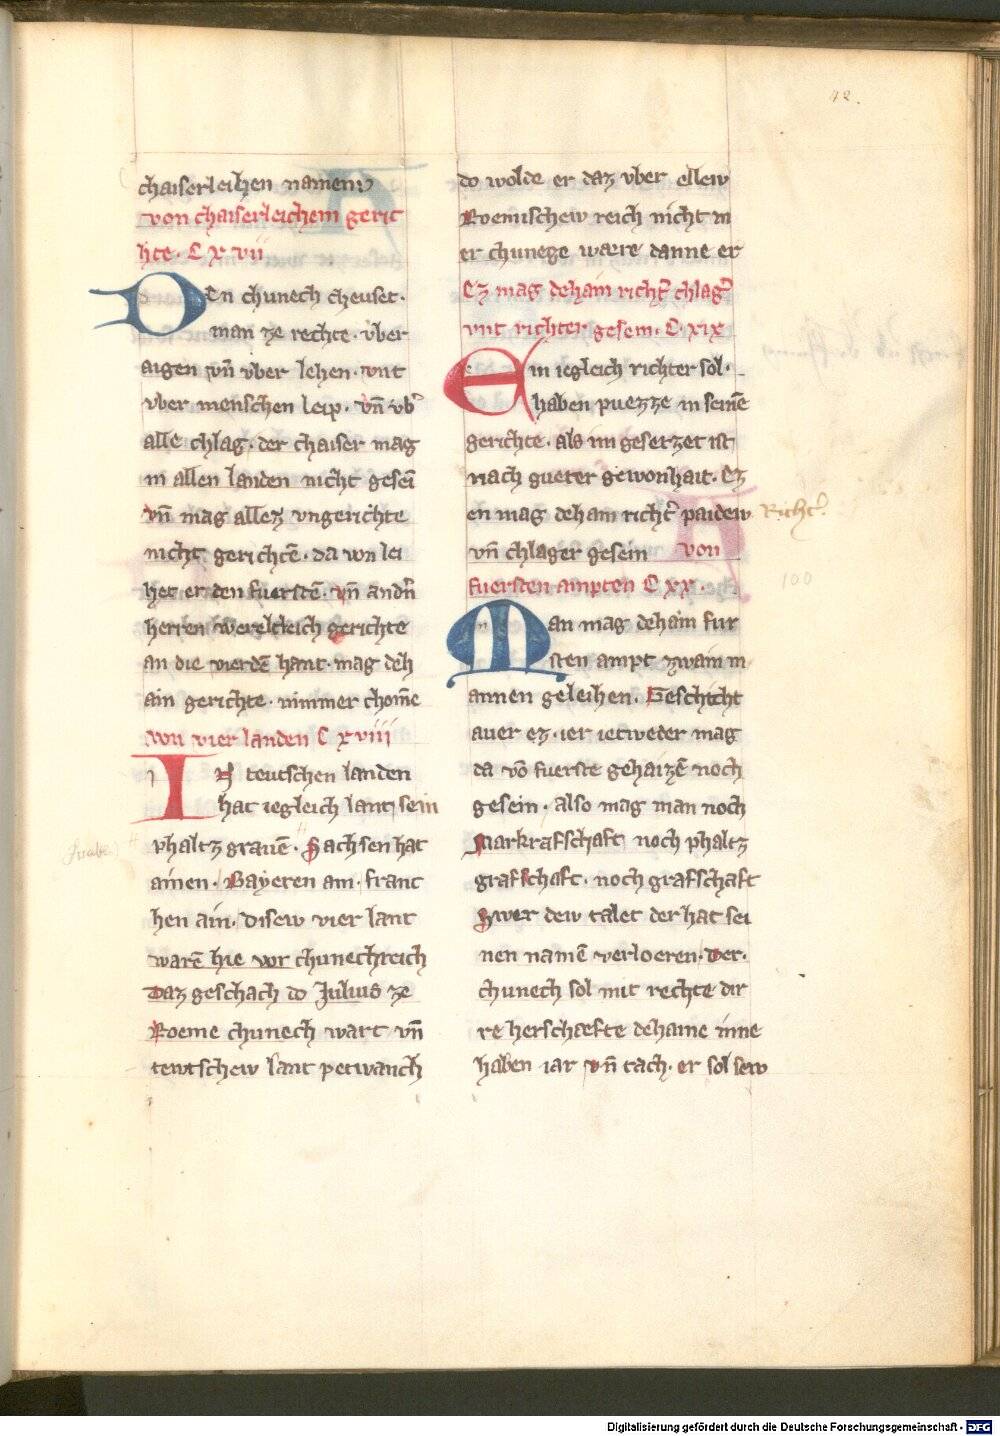 42.
chaiserleichen namen
von chaiserleichem geric
hte. C xvii
Den chunech cheuset.
man ze rechte. vber
aigen vn̄ vber lehen. vnt
vber menschen leip. vn̄ vb͛
alle chlag. der chaiser mag
in allen landen nicht gesei̅
vn̄ mag allez vngerichte
nicht gerichte̅. da von lei
het er den fuerste̅. vn̄ andn͛
herren werltleich gerichte
an die vierde̅ hant. mag deh
ain gerichte. nimmer chom̅e
von vier landen C xviii
IN teutschen landen
hat iegleich lant sein
phaltzgraue̅. Sachsen hat
ainen. Bayeren ain. franc
hen ain. disew vier lant
ware̅ hie vor chunechreich
Daz geschach do Julius ze
Roeme chunech wart vn̄
tewtschew lant petwanch
do wolde er daz vber ellew
Roemischew reich nicht m
er chunege waere danne er
Ez mag dehain richt͛ chlag͛
vnt richter gesein. C. xix
Ein iegleich richter sol.
haben puezze in seine̅
gerichte. als im gesetzet ist
nach gueter gewonhait. Ez
en mag dehain richt͛ paidew
vn̄ chlager gesein von
fuersten ampten C xx.
Richt͛.
100
Man mag dehain fur
sten ampt zwain m
annen geleihen. Geschicht
auer ez. ier ietweder mag
da vo̅ fuerste gehaize̅ noch
gesein. also mag man noch
Markrafschaft noch phaltz
grafschaft. noch grafschaft
Swer dew talet der hat sei
nen name̅ verloeren. Der.
chunech sol mit rechte dir
re herschaefte dehaine inne
haben iar vn̄ tach. er sol sew
Digitalisierung gefördert durch die Deutsche Forschungsgemeinschaft - DFG